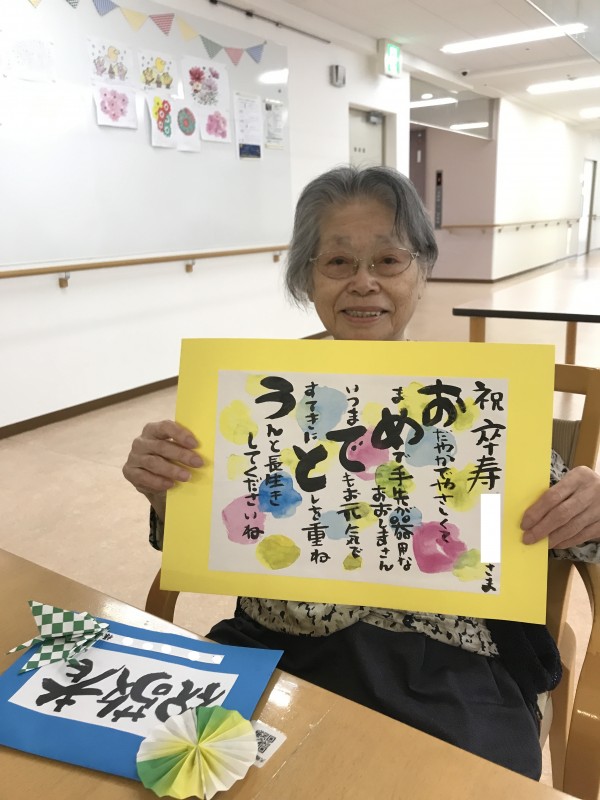 祝卒寿 さま
おだやかやさしくて
まめで手先が器用な
おおしまさん
いつまでもお元気で
すてきにとしを重ね
うんと長生き
してくださいね